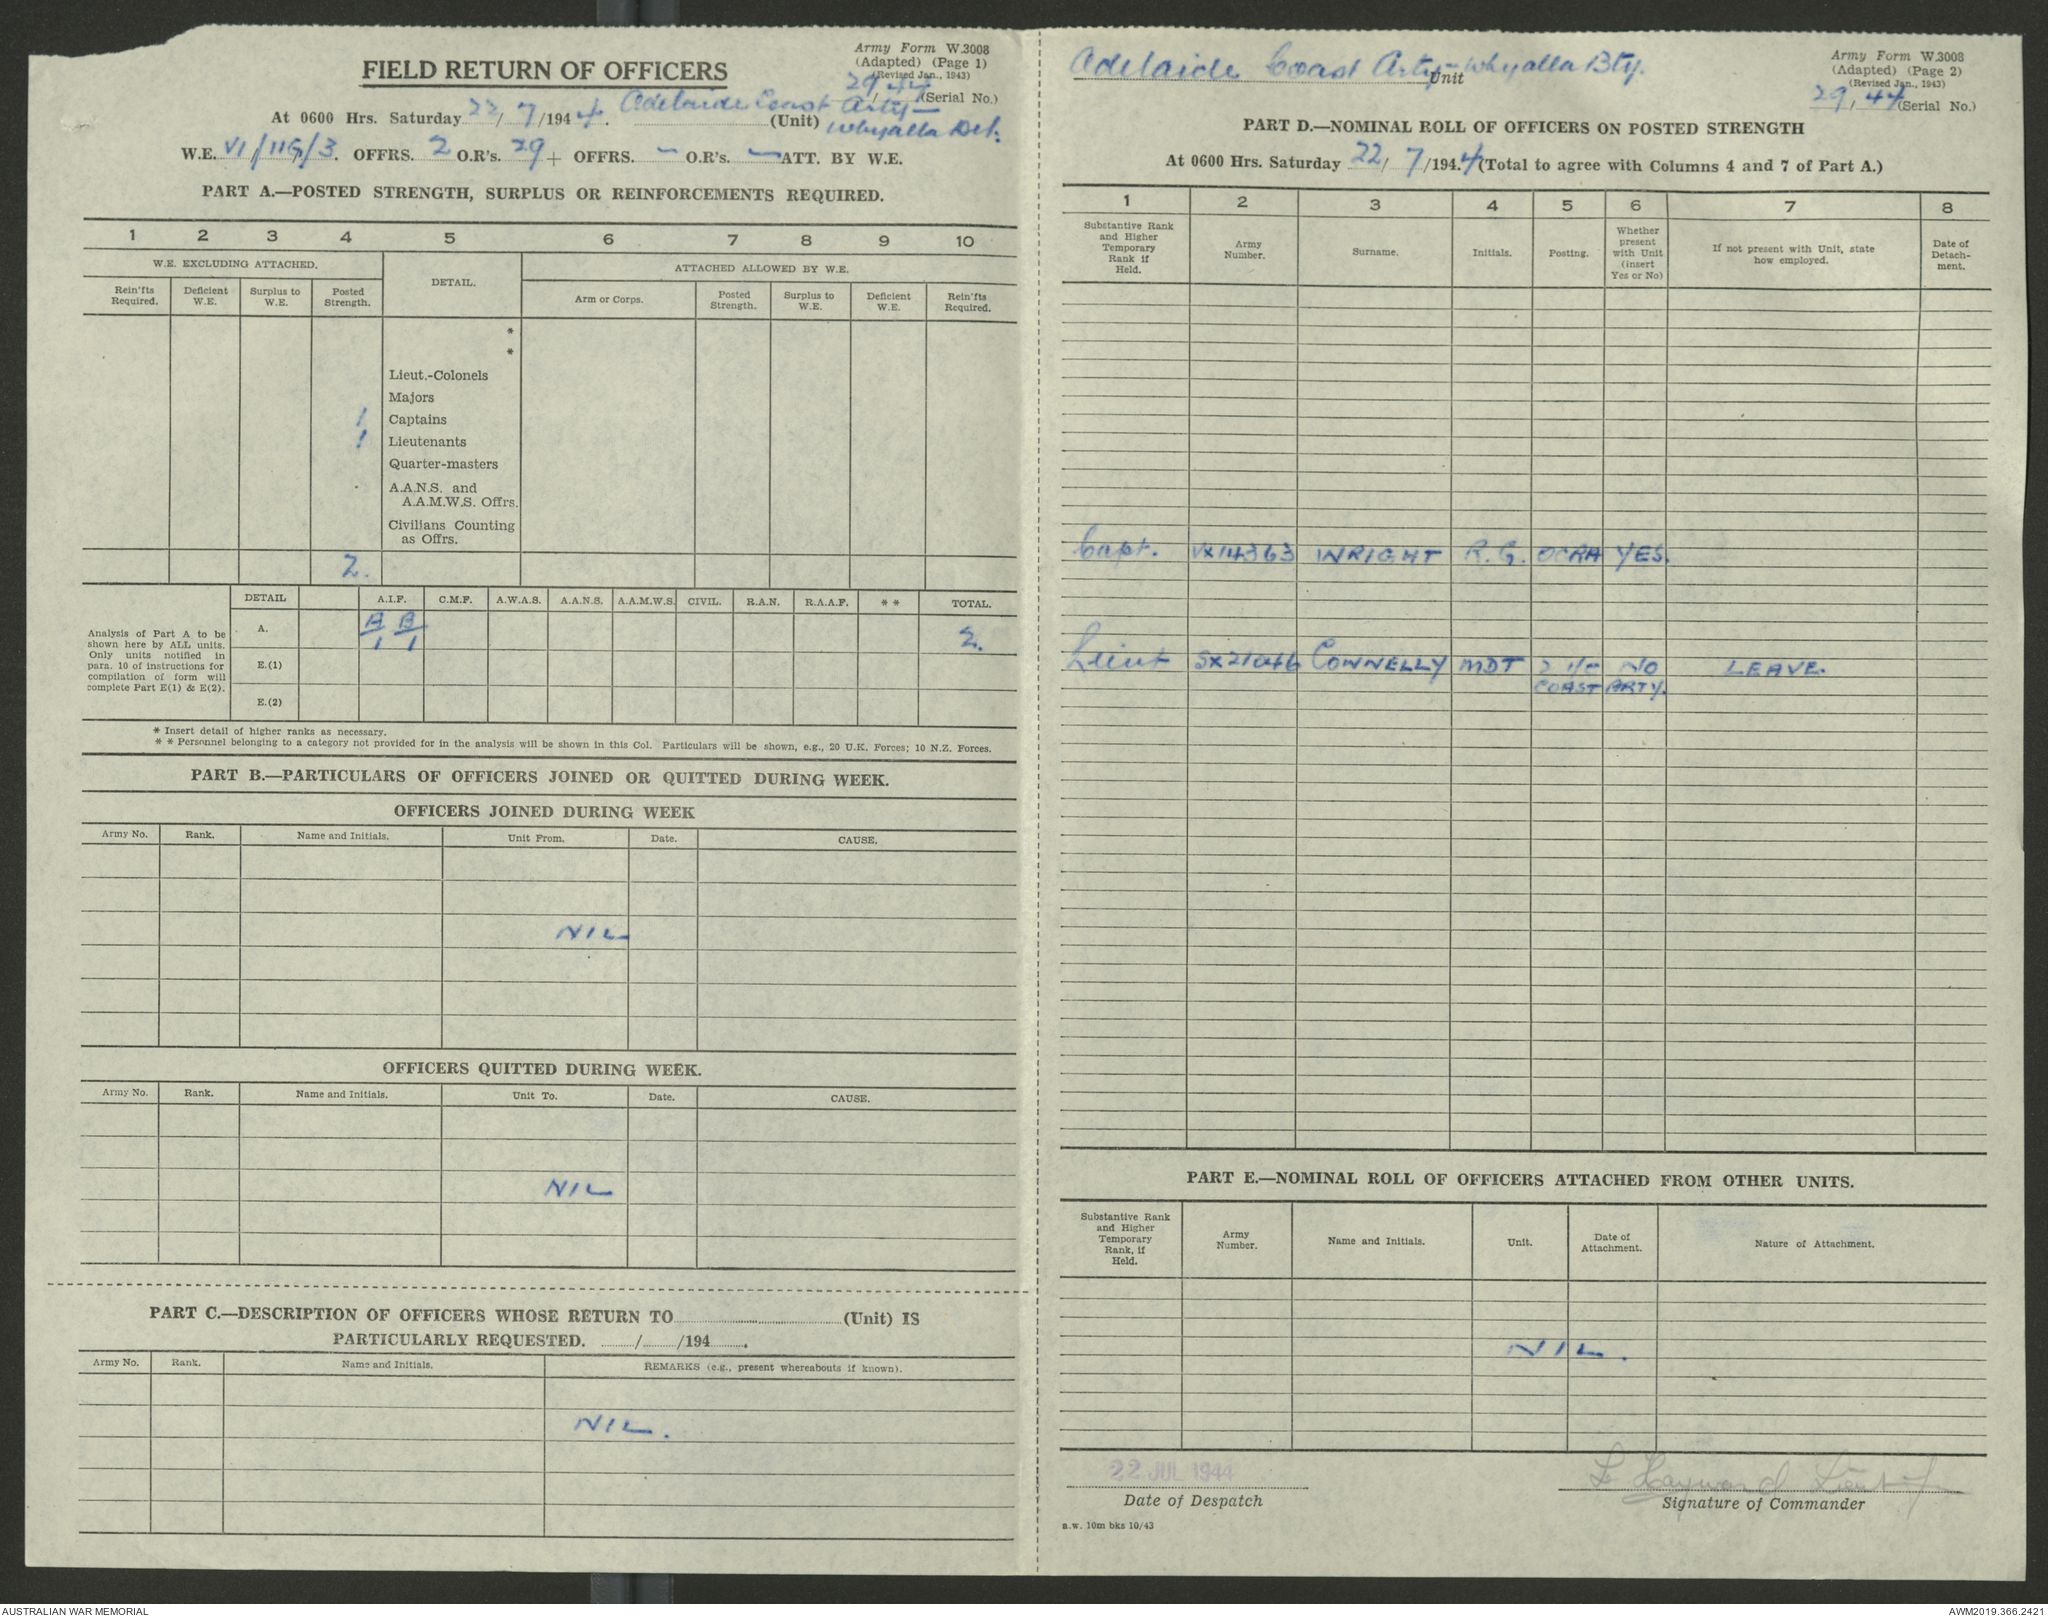 Army Form W.3008
(Adapted) (Page 1)
(Revised Jan., 1943)
29/44 (Serial No.)
FIELD RETURN OF OFFICERS
At 0600 Hrs. Saturday 22/7/1944. Adelaide Coast Arty - (Unit)
Whyalla Det.
W.E. VI/11G/3. OFFRS. 2 O.R's. 29 + OFFRS. - O.R's. - ATT. BY W.E.
PART A.—POSTED STRENGTH, SURPLUS OR REINFORCEMENTS REQUIRED.
1 2 3 4 5 6 7 8 9 10
W.E. EXCLUDING ATTACHED. DETAIL. ATTACHED ALLOWED BY W.E.
Rein'fts Required. Deficient W.E. Surplus to W.E. Posted Strength. Arm or Corps. Posted Strength. Surplus to W.E. Deficient W.E. Rein'fts Required.
*
*
Lieut.-Colonels
Majors
1 Captains
1 Lieutenants
Quarter-masters
A.A.N.S. and
A.A.M.W.S. Offrs.
Civilians Counting
as Offrs.
2.
DETAIL A.I.F. C.M.F. A.W.A.S. A.A.N.S. A.A.M.W.S. CIVIL. R.A.N. R.A.A.F. * * TOTAL.
Analysis of Part A to be
shown here by ALL units.
Only units notified in
para. 10 of instructions for
compilation of form will
complete Part E(1) & E(2).
A. A/1 B/1 2.
E.(1)
E.(2)
* Insert detail of higher ranks as necessary.
* * Personnel belonging to a category not provided for in the analysis will be shown in this Col. Particulars will be shown, e.g., 20 U.K. Forces; 10 N.Z. Forces.
PART B.—PARTICULARS OF OFFICERS JOINED OR QUITTED DURING WEEK.
OFFICERS JOINED DURING WEEK
Army No. Rank. Name and Initials. Unit From. Date. CAUSE.
NIL
OFFICERS QUITTED DURING WEEK.
Army No. Rank. Name and Initials. Unit To. Date. CAUSE.
NIL
PART C.—DESCRIPTION OF OFFICERS WHOSE RETURN TO (Unit) IS
PARTICULARLY REQUESTED. / /194 .
Army No. Rank. Name and Initials. REMARKS (e.g., present whereabouts if known).
NIL.
Adelaide Coast Arty - Whyalla Bty. Unit
Army Form W.3008
(Adapted) (Page 2)
(Revised Jan., 1943)
29/44 (Serial No.)
PART D.—NOMINAL ROLL OF OFFICERS ON POSTED STRENGTH
At 0600 Hrs. Saturday 22/7/1944 (Total to agree with Columns 4 and 7 of Part A.)
1 2 3 4 5 6 7 8
Substantive Rank and Higher Temporary Rank if Held. Army Number. Surname. Initials. Posting. Whether present with Unit (insert Yes or No) If not present with Unit, state how employed. Date of Detach-ment.
Capt. VX14363 WRIGHT R.G. OCRA YES.
Lieut SX21046 CONNELLY MDT 2 i/c NO LEAVE.
COAST ARTY.
PART E.—NOMINAL ROLL OF OFFICERS ATTACHED FROM OTHER UNITS.
Substantive Rank and Higher Temporary Rank, if Held. Army Number. Name and Initials. Unit. Date of Attachment. Nature of Attachment.
NIL.
22 JUL 1944
Date of Despatch
L Hayward Lieut
Signature of Commander
a.w. 10m bks 10/43
AUSTRALIAN WAR MEMORIAL
AWM2019.366.2421